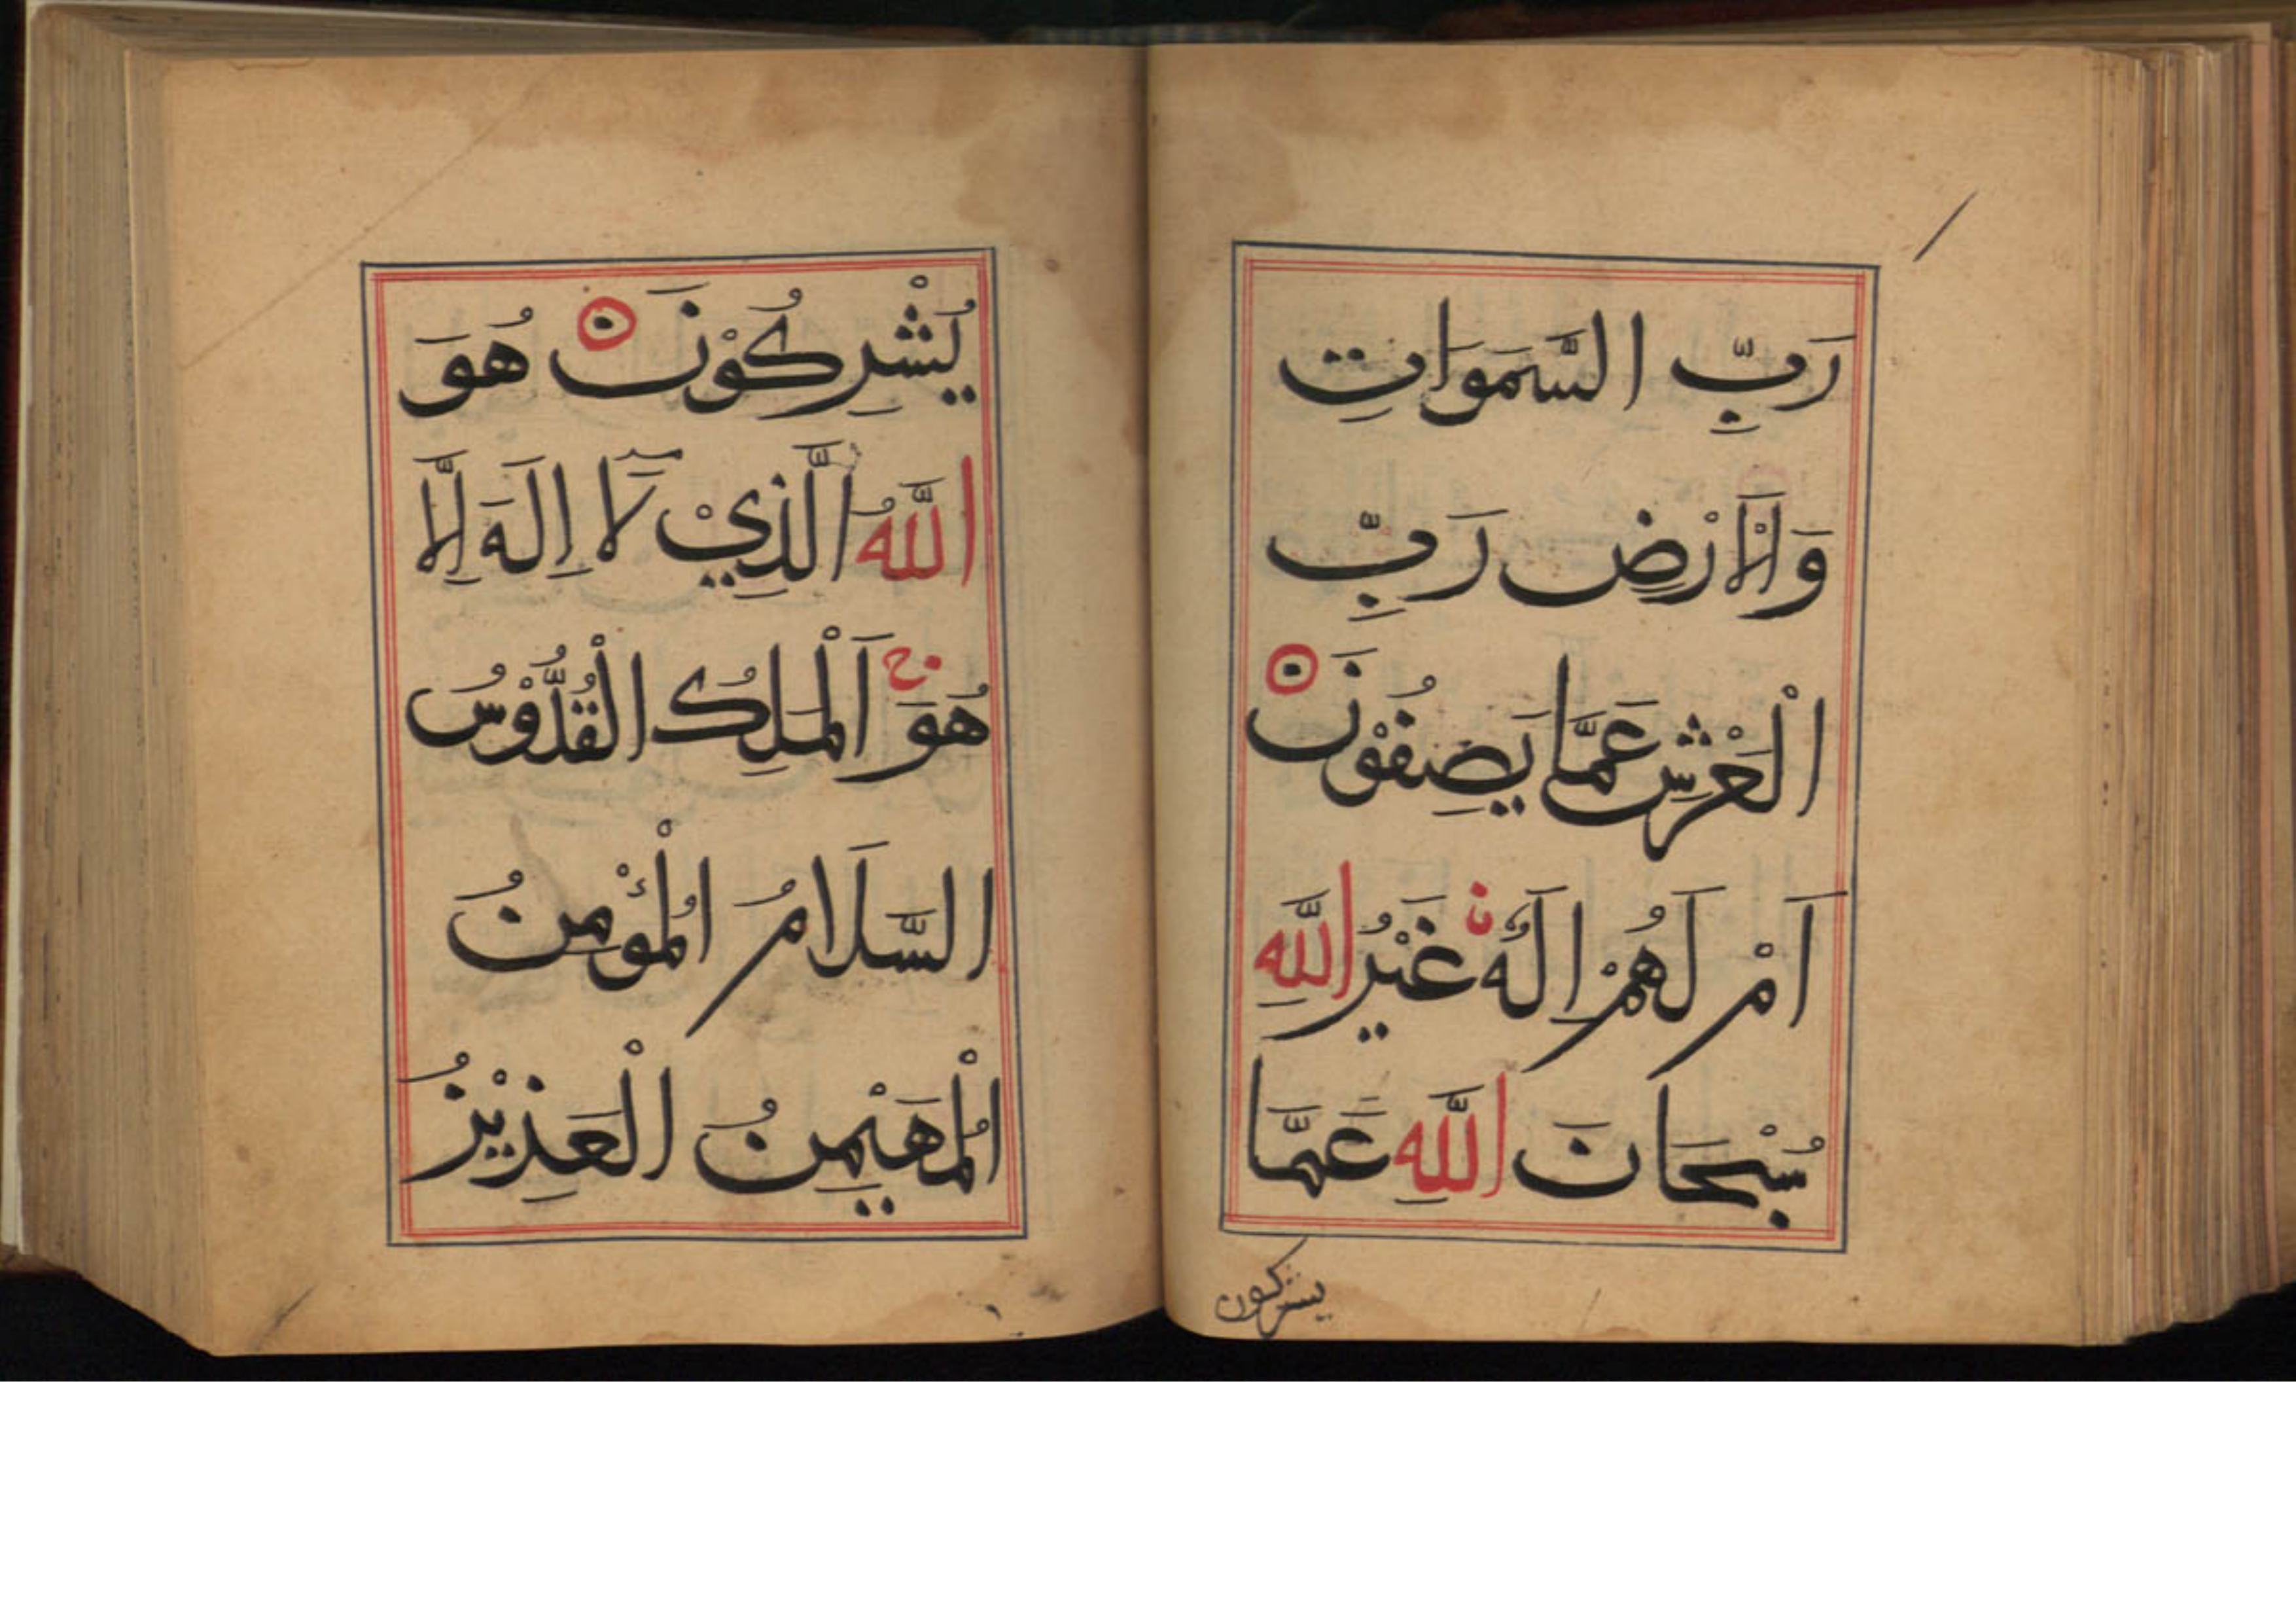 رَبِّ السَّمَوَاتِ
وَلَاْلَاْرْضِ رَبِّ
الْعَرْشِ عَمَّا يَصِفُوْنَ
اَمْ لَهُمْ اِلَهٌ غَيْرُ اللَّهِ
سُبْحَانَ اللَّهِ عَمَّا
يشركون
يُشْرِكُوْنَ هُوَ
اللَّهُ الَّذِيْ لَآ اِلَهَ اِلَّا
هُوَ اَلْمَلِكُ الْقُدُّوْسُ
السَّلَامُ الْمُؤْمِنُ
الْمُهَيْمِنُ الْعَذِيْزُ